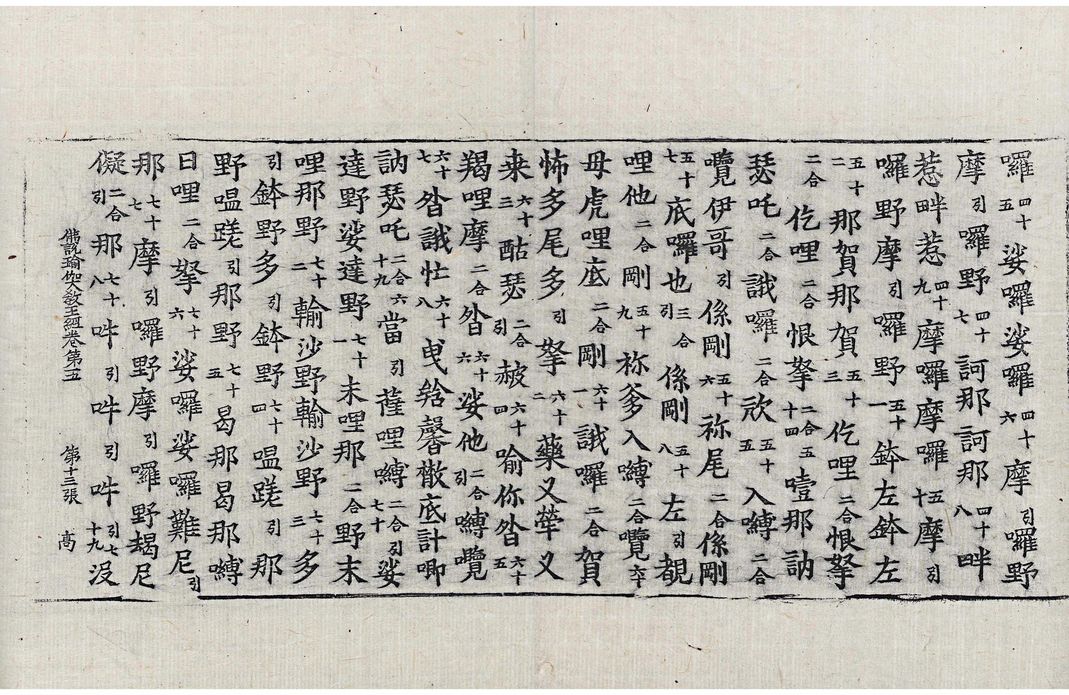 囉四十五娑囉娑囉四十六摩引囉野
摩引囉野四十七訶那訶那四十八畔
惹畔惹四十九摩囉摩囉五十摩引
囉野摩引囉野五十一鉢左鉢左
五十二那賀那賀五十三仡哩二合恨拏
二合仡哩二合恨拏二合五十四噎那訥
瑟吒二合誐囉二合欻五十五入嚩二合
囕伊哥引係剛五十六祢尾二合係剛
五十七底囉也三合引係剛五十八左引覩
哩他二合剛五十九祢爹入嚩二合囕六十
母虎哩底二合剛六十一誐囉二合賀
怖多尾多引拏六十二藥叉犖叉
来六十三酤瑟二合引赦六十四喻你沓六十五
羯哩摩二合沓六十六娑他二合引嚩囕
六十七沓誐忙六十八曵㕎馨㯙底計唧
訥瑟吒二合六十九當引薩哩嚩二合引七十娑
達野娑達野七十一末哩那二合野末
哩那野七十二輸沙野輸沙野七十三多
引鉢野多引鉢野七十四嗢蹉引那
野嗢蹉引那野七十五曷那曷那嚩
日哩二合拏七十六娑囉娑囉難尼引
那七十七摩引囉野摩引囉野朅尼
儗二合引那七十八吽引吽引吽引七十九沒
佛說瑜伽大教王經卷第五 第十三張 髙